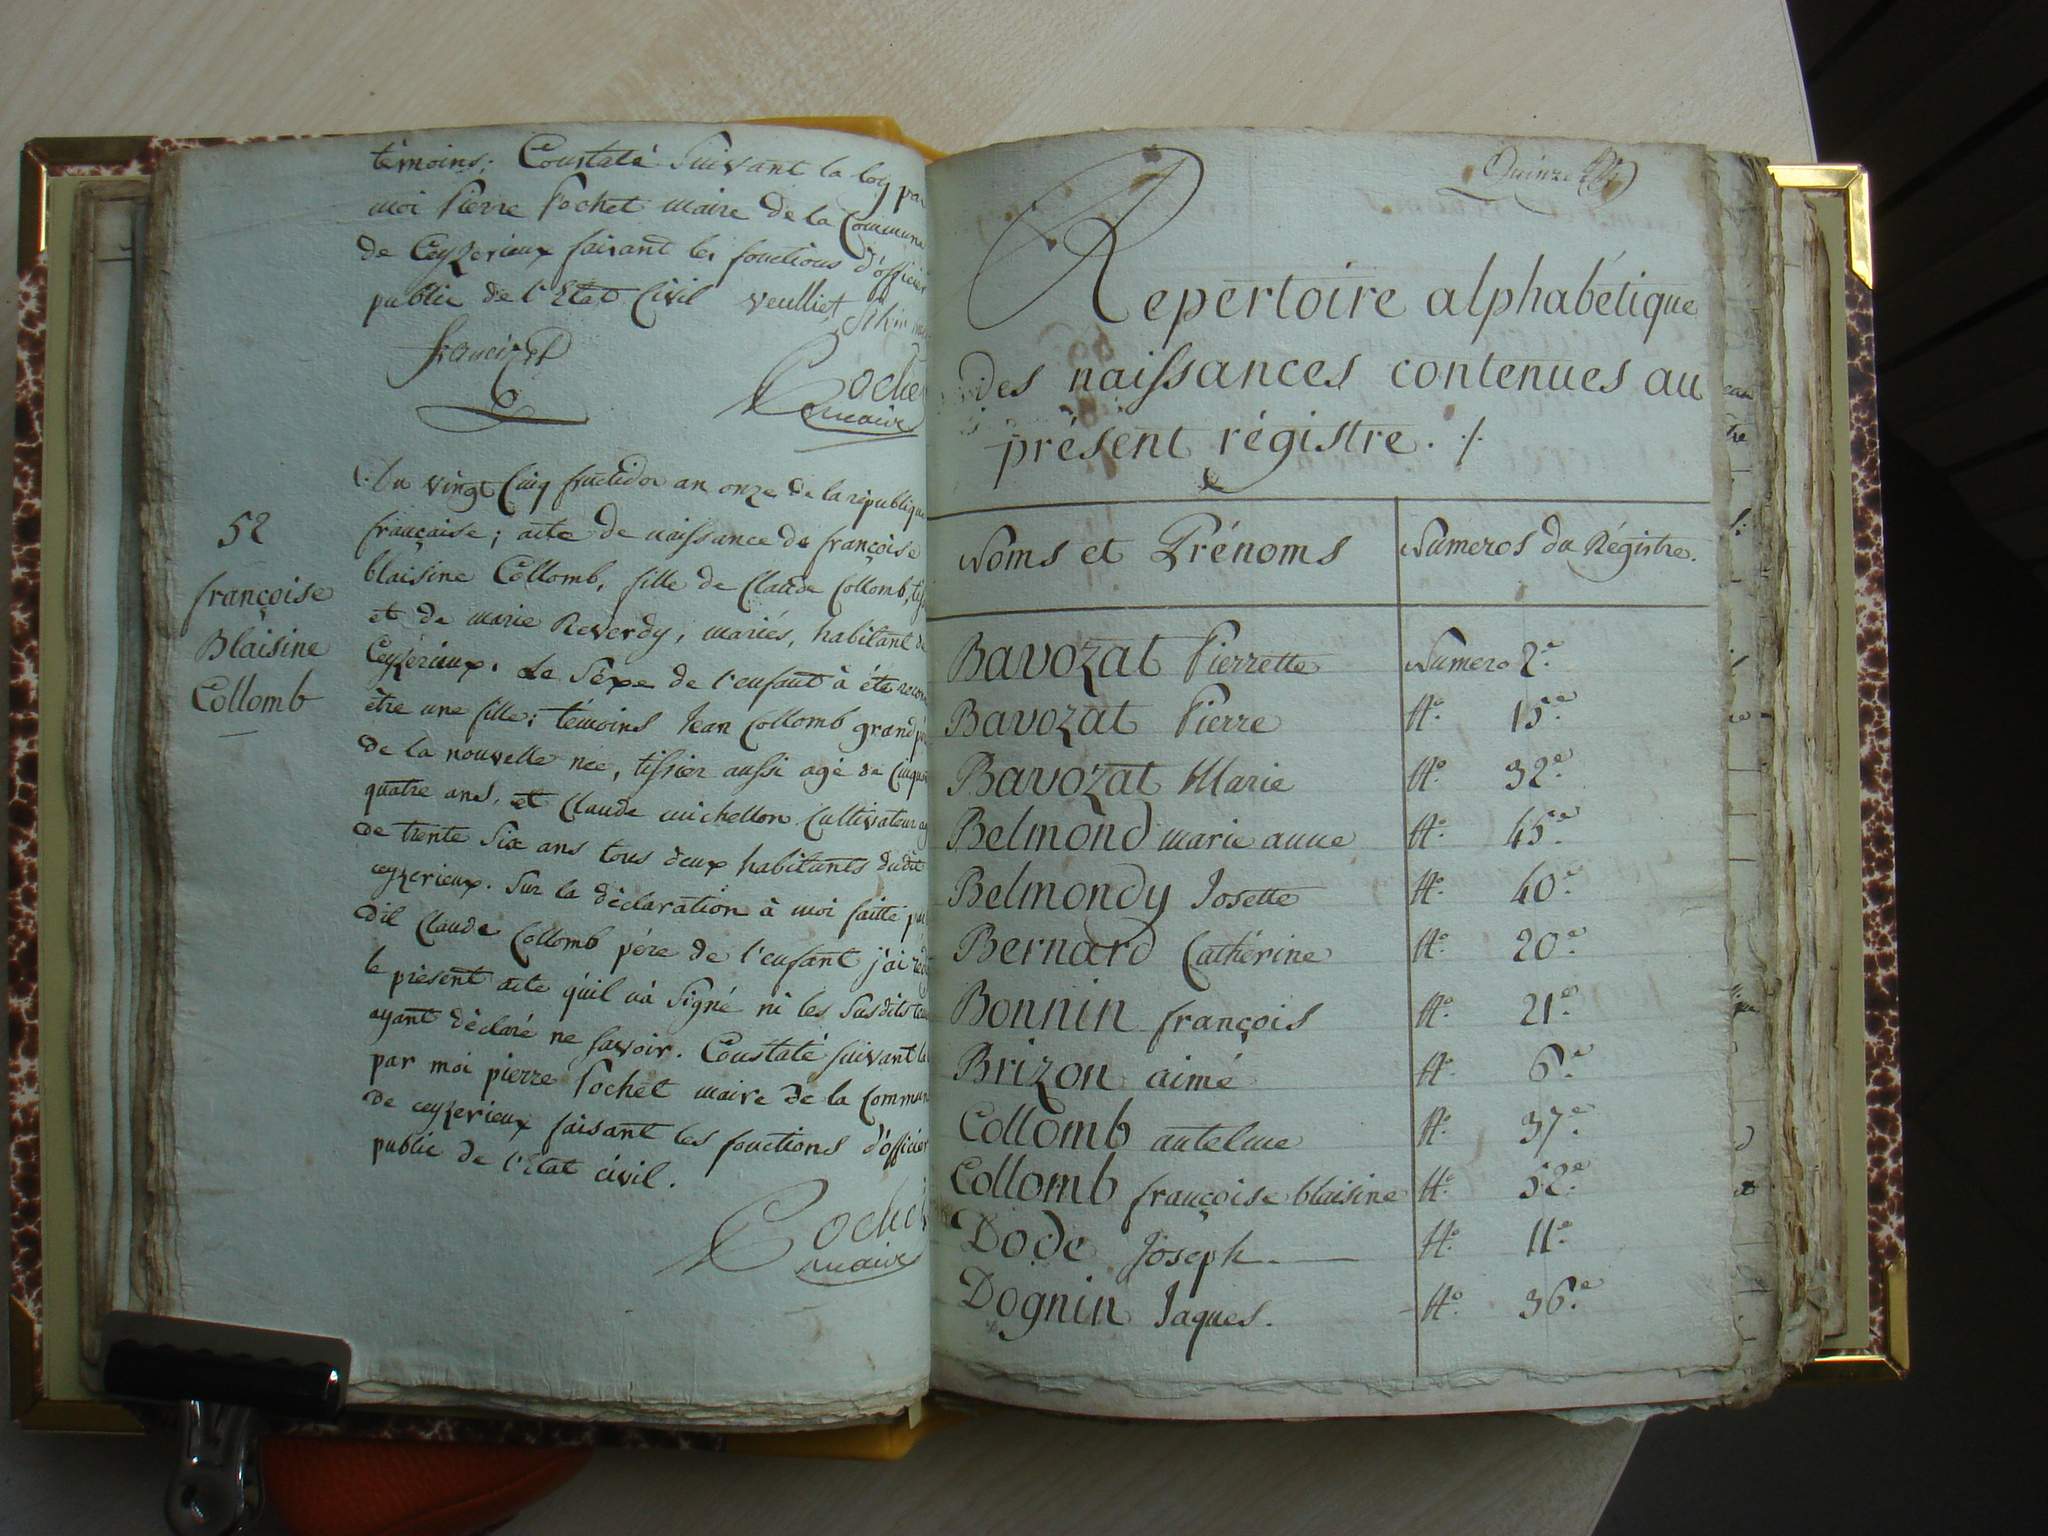 témoins; Constaté Suivant la loy par
moi Pierre Pochet maire de la Commune
de Ceyzerieux faisant les fonctions d'officier
public de l'Etat Civil veulliet
Pochet
maire
52
françoise
Blaisine
Collomb
Du vingt Cinq fructidor an onze de la république
française; acte de naissance de françoise
blaisine Collomb, fille de Claude Collomb,
et de marie Reverdy, mariés, habitant de
Ceyzerieux. Le Séxe de l'enfant à été
être une fille; témoins Jean Collomb grand
de la nouvelle née, tissier aussi agé de
quatre ans, et Claude michellon Cultivateur
de trente Six ans tous deux habitants dudit
ceyzerieux. Sur la déclaration à moi faitte
dit Claude Collomb pére de l'enfant j'ai
le présent acte qu'il n'à Signé ni les Susdits
ayant déclaré ne savoir. Constaté suivant la
par moi pierre Pochet maire de la Commune
de ceyzerieux faisant les fonctions d'officier
public de l'Etat civil.
Pochet
maire
Quinze
Repertoire alphabétique
des naissances contenues au
présent régistre ./.
Noms et Prénoms Numéros du Régistre.
Bavozat Pierrette Numero 2.e
Bavozat Pierre No. 15.e
Bavozat Marie No. 32.e
Belmond marie anne No. 45.e
Belmondy Josette No. 40.e
Bernard Cathérine No. 20.e
Bonnin françois No. 21.e
Brizon aimé No. 6.e
Collomb antelme No. 37.e
Collomb françoise blaisine No. 52.e
Dode Joseph No. 11.e
Dognin Jaques. No. 36.e